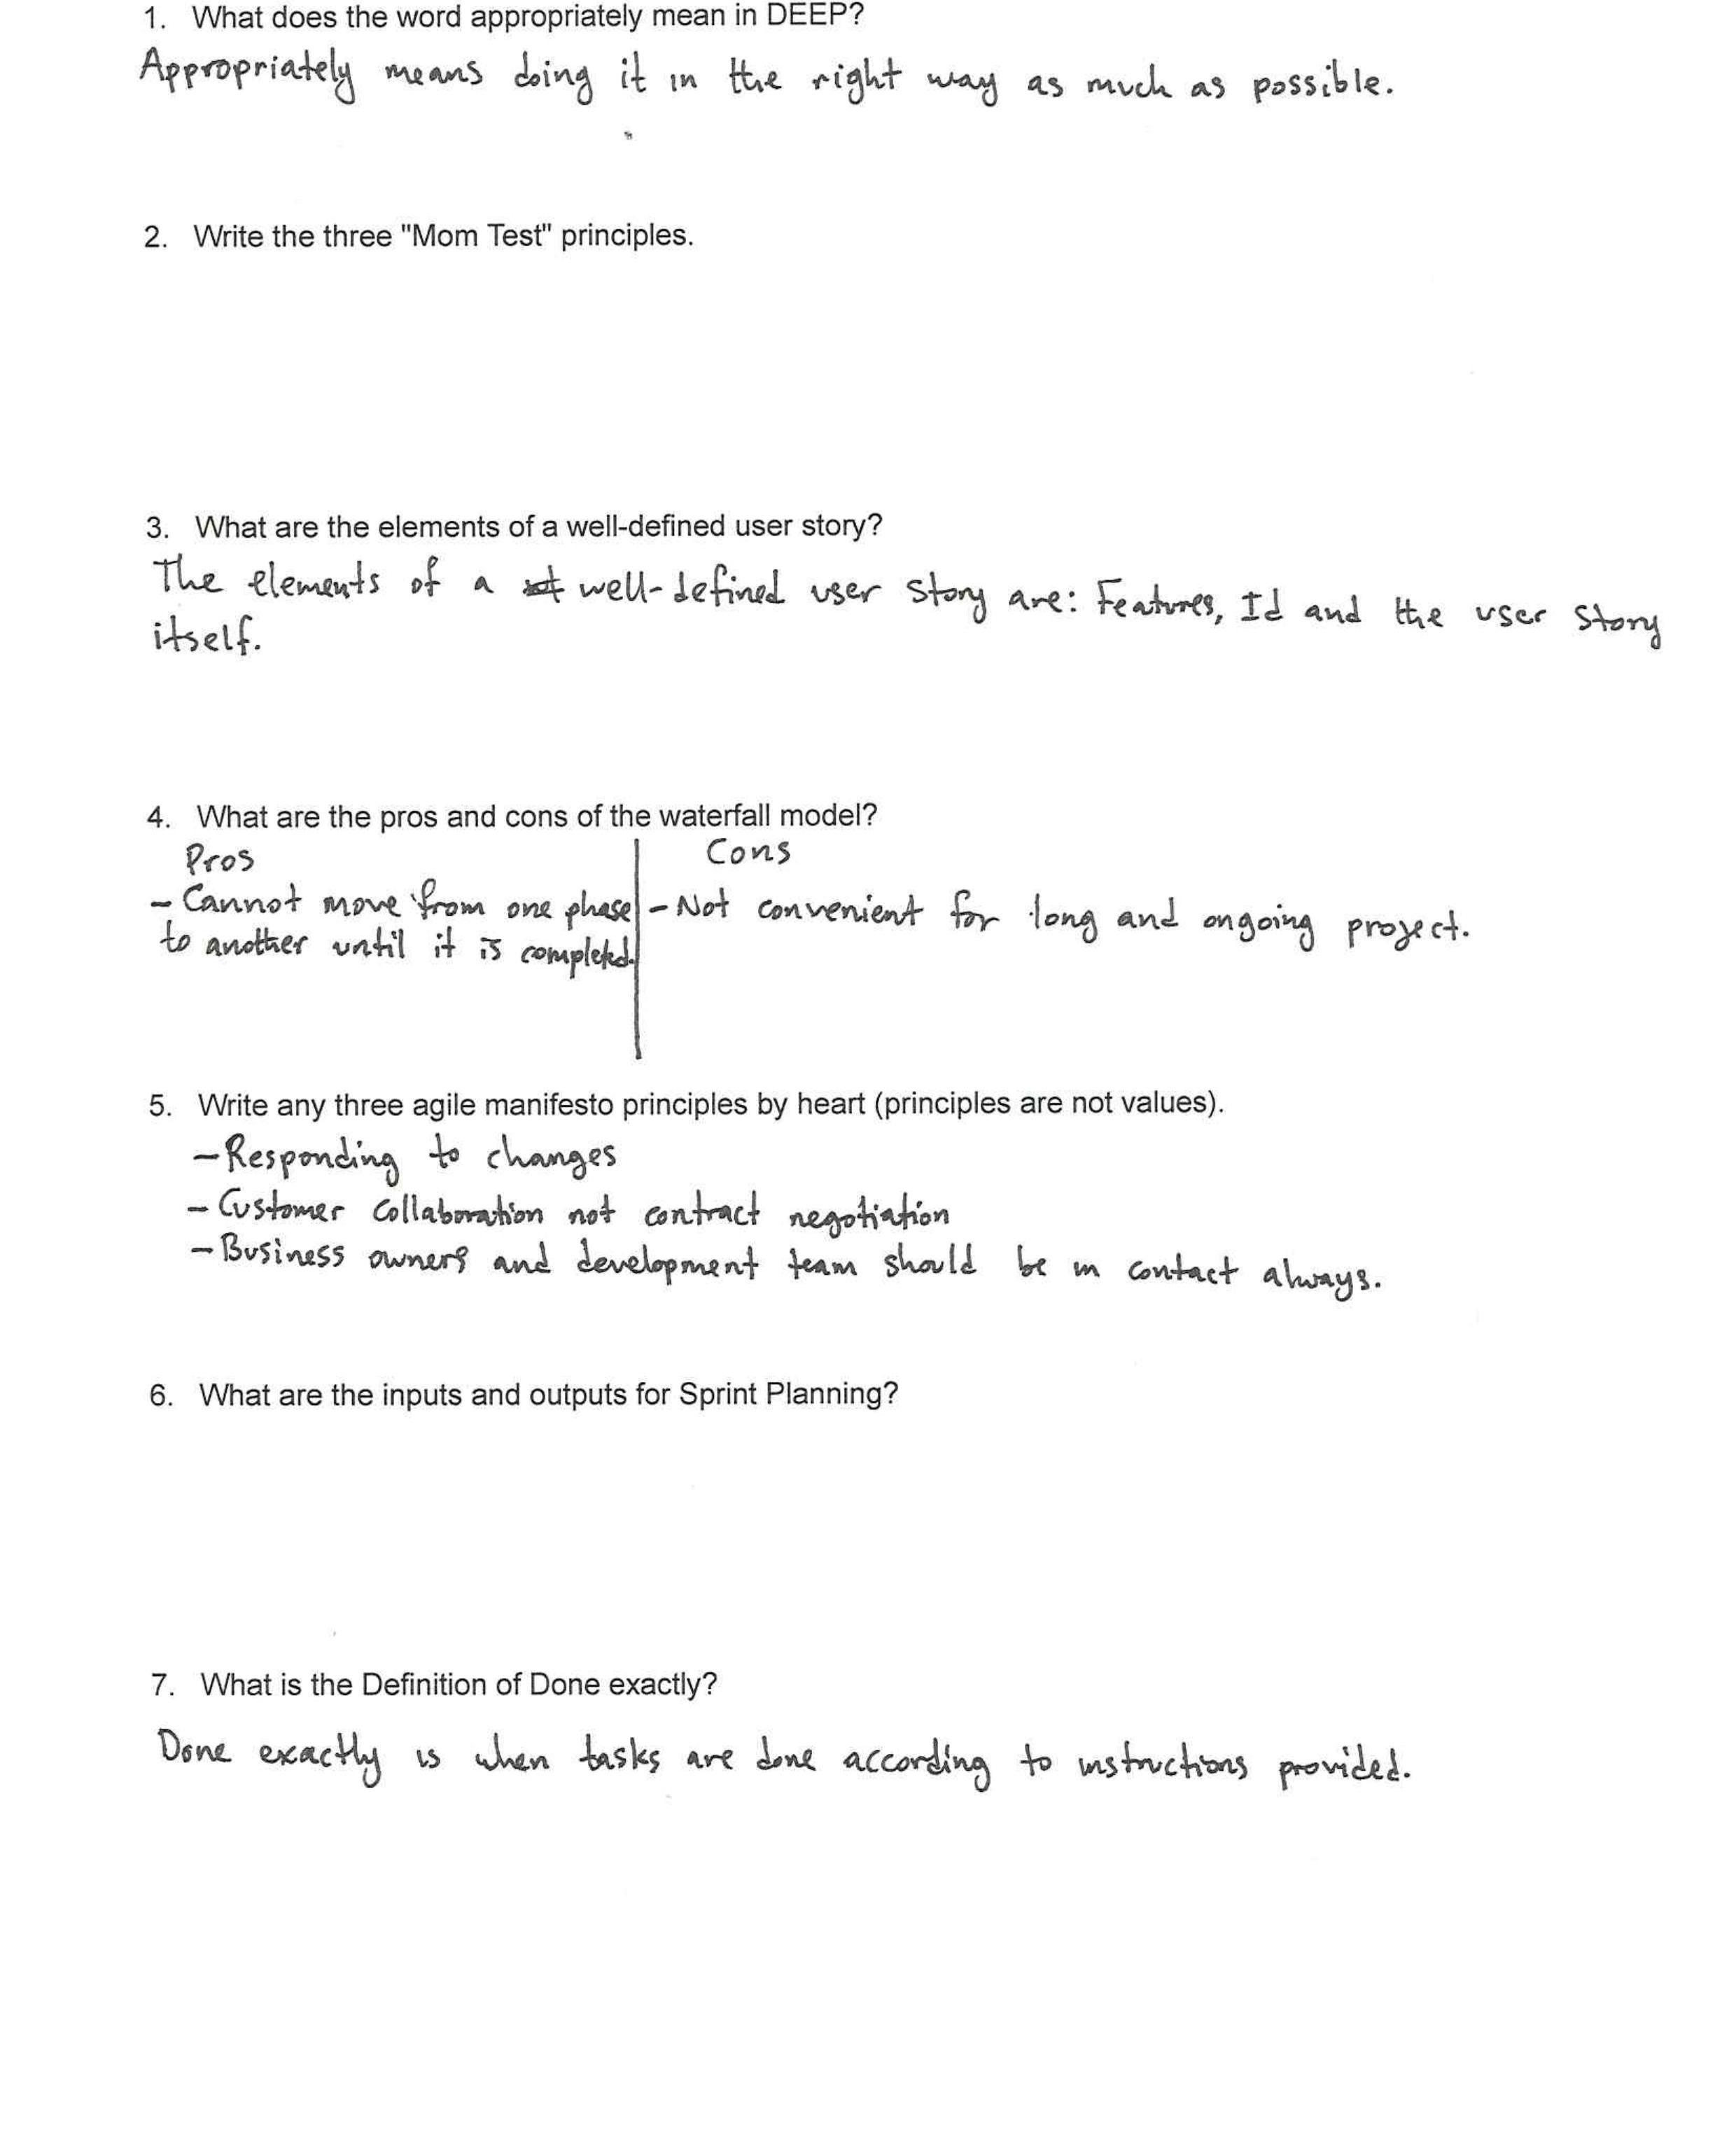 1. What does the word appropriately mean in DEEP?
Appropriately means doing it in the right way as much as possible.
2. Write the three "Mom Test" principles.
3. What are the elements of a well-defined user story?
The elements of a well-defined user story are: Features, Id and the user story
itself.
4. What are the pros and cons of the waterfall model?
Pros
- Cannot move from one phase
to another until it is completed.
Cons
- Not convenient for long and ongoing project.
5. Write any three agile manifesto principles by heart (principles are not values).
- Responding to changes
- Customer collaboration not contract negotiation
- Business owners and development team should be in contact always.
6. What are the inputs and outputs for Sprint Planning?
7. What is the Definition of Done exactly?
Done exactly is when tasks are done according to instructions provided.